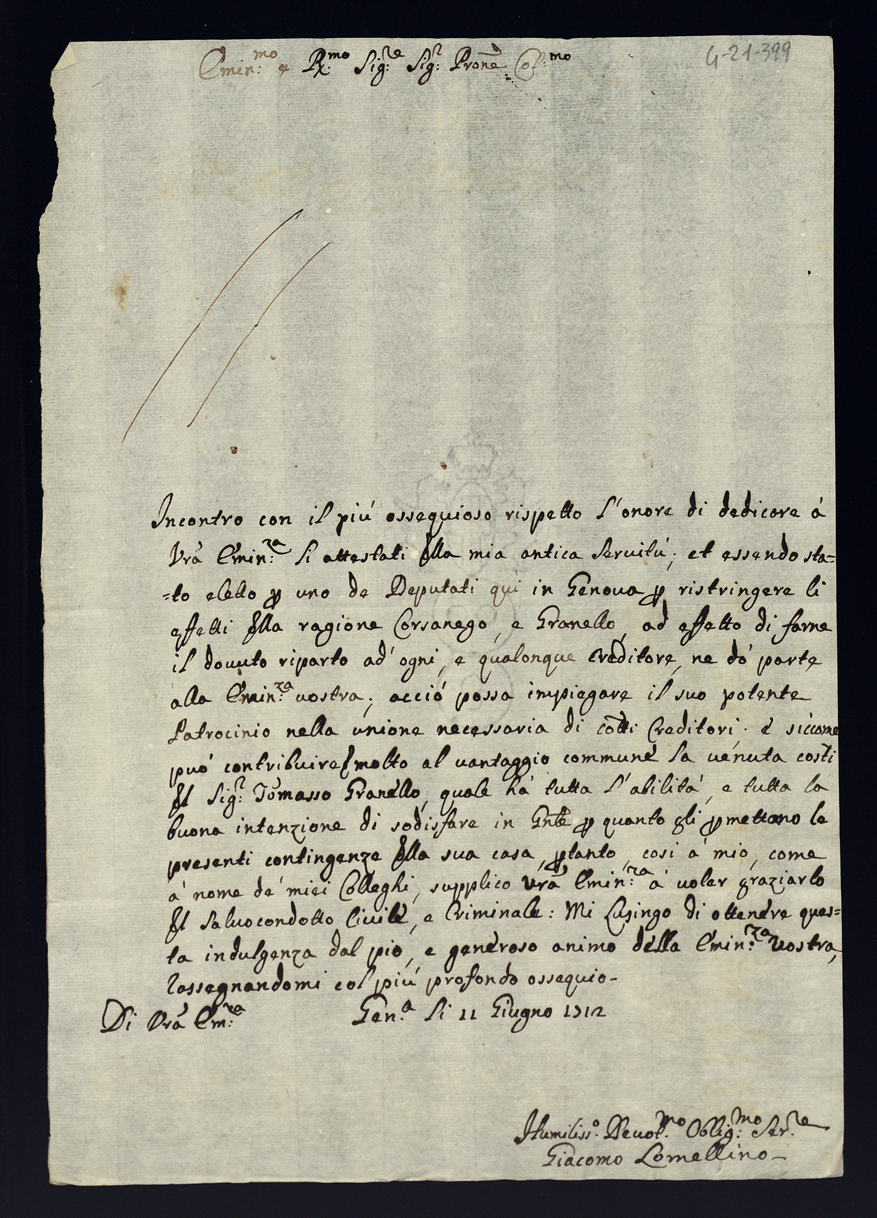 Emin:mo e R:mo Sig:re Sig:r Prone Col:mo
4-21-399
Incontro con il più ossequioso rispetto l'onore di dedicare à
Vrà Emin:za li attestati della mia antica servitù; et essendo sta=
=to eletto p uno de Deputati qui in Genova p ristringere li
effetti della ragione Corsanego, e Granello, ad effetto di farne
il dovuto riparto ad' ogni, e qualonque creditore, ne dò parte
alla Emin:za vostra; acciò possa impiegare il suo potente
Patrocinio nella unione necessaria di cotti Creditori. è siccome
può contribuire molto al vantaggio commune la venuta costì
del Sig:r Tomasso Granello, quale hà tutta l'abilità, e tutta la
buona intenzione di sodisfare in Gnte p quanto gli pmettono le
presenti contingenze della sua casa, ptanto, così à mio, come
à nome de' miei Colleghi, supplico Vrà Emin:za à voler graziarlo
del salvocondotto Civile, e Criminale: Mi lusingo di ottenere ques=
ta indulgenza dal pio, e generoso animo della Emin:za Vostra,
rassegnandomi col più profondo ossequio-
Di Vrà Em:za Gen:a li 11 Giugno 1712
Humiliss:o Devot:mo Oblig:mo Ser:re
Giacomo Lomellino-